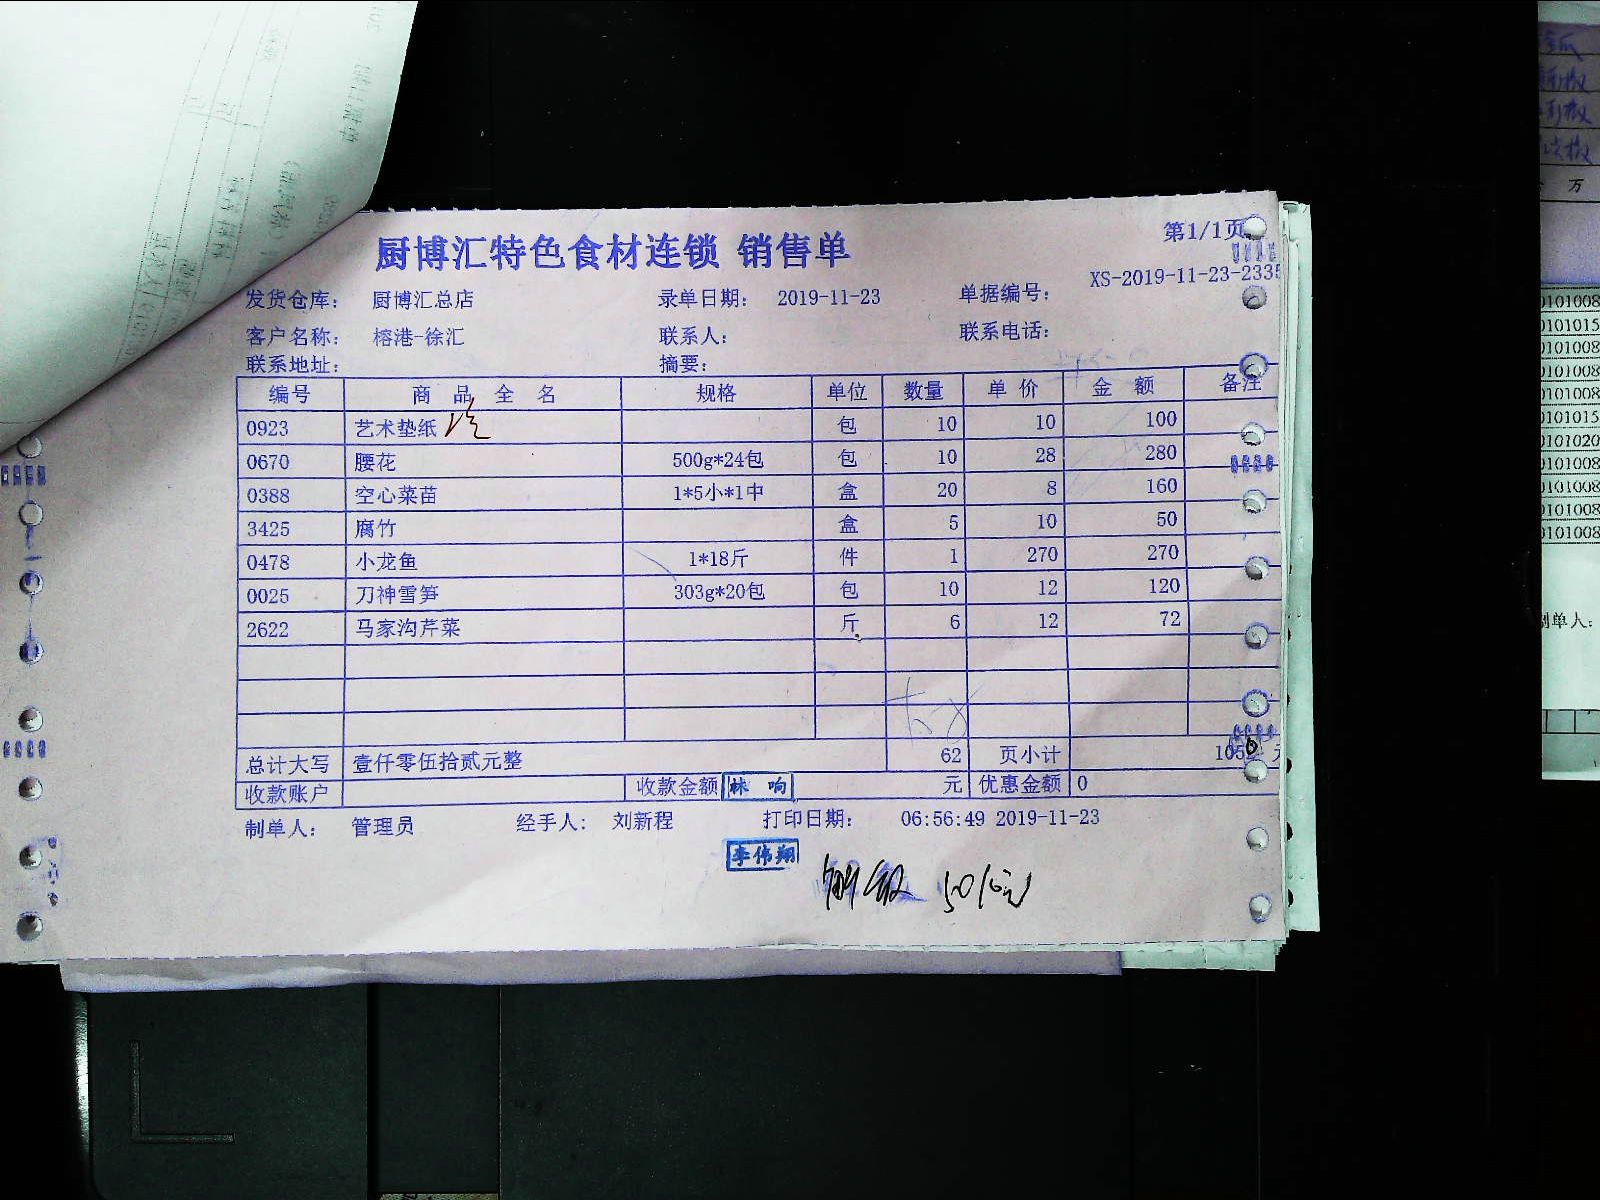 厨博汇特色食材连锁 销售单
第1/1页
发货仓库： 厨博汇总店 录单日期： 2019-11-23 单据编号： XS-2019-11-23-2335
客户名称： 榕港-徐汇 联系人： 联系电话：
联系地址： 摘要：
编号 商品全名 规格 单位 数量 单价 金额 备注
0923 艺术垫纸 包 10 10 100
0670 腰花 500g*24包 包 10 28 280
0388 空心菜苗 1*5小*1中 盒 20 8 160
3425 腐竹 盒 5 10 50
0478 小龙鱼 1*18斤 件 1 270 270
0025 刀神雪笋 303g*20包 包 10 12 120
2622 马家沟芹菜 斤 6 12 72
总计大写 壹仟零伍拾贰元整 62 页小计 1052 元
收款账户 收款金额 林响 元 优惠金额 0
制单人： 管理员 经手人： 刘新程 打印日期： 06:56:49 2019-11-23
李伟翔
0101008
0101015
0101008
0101008
0101008
0101015
0101020
0101008
0101008
0101008
0101008
制单人：